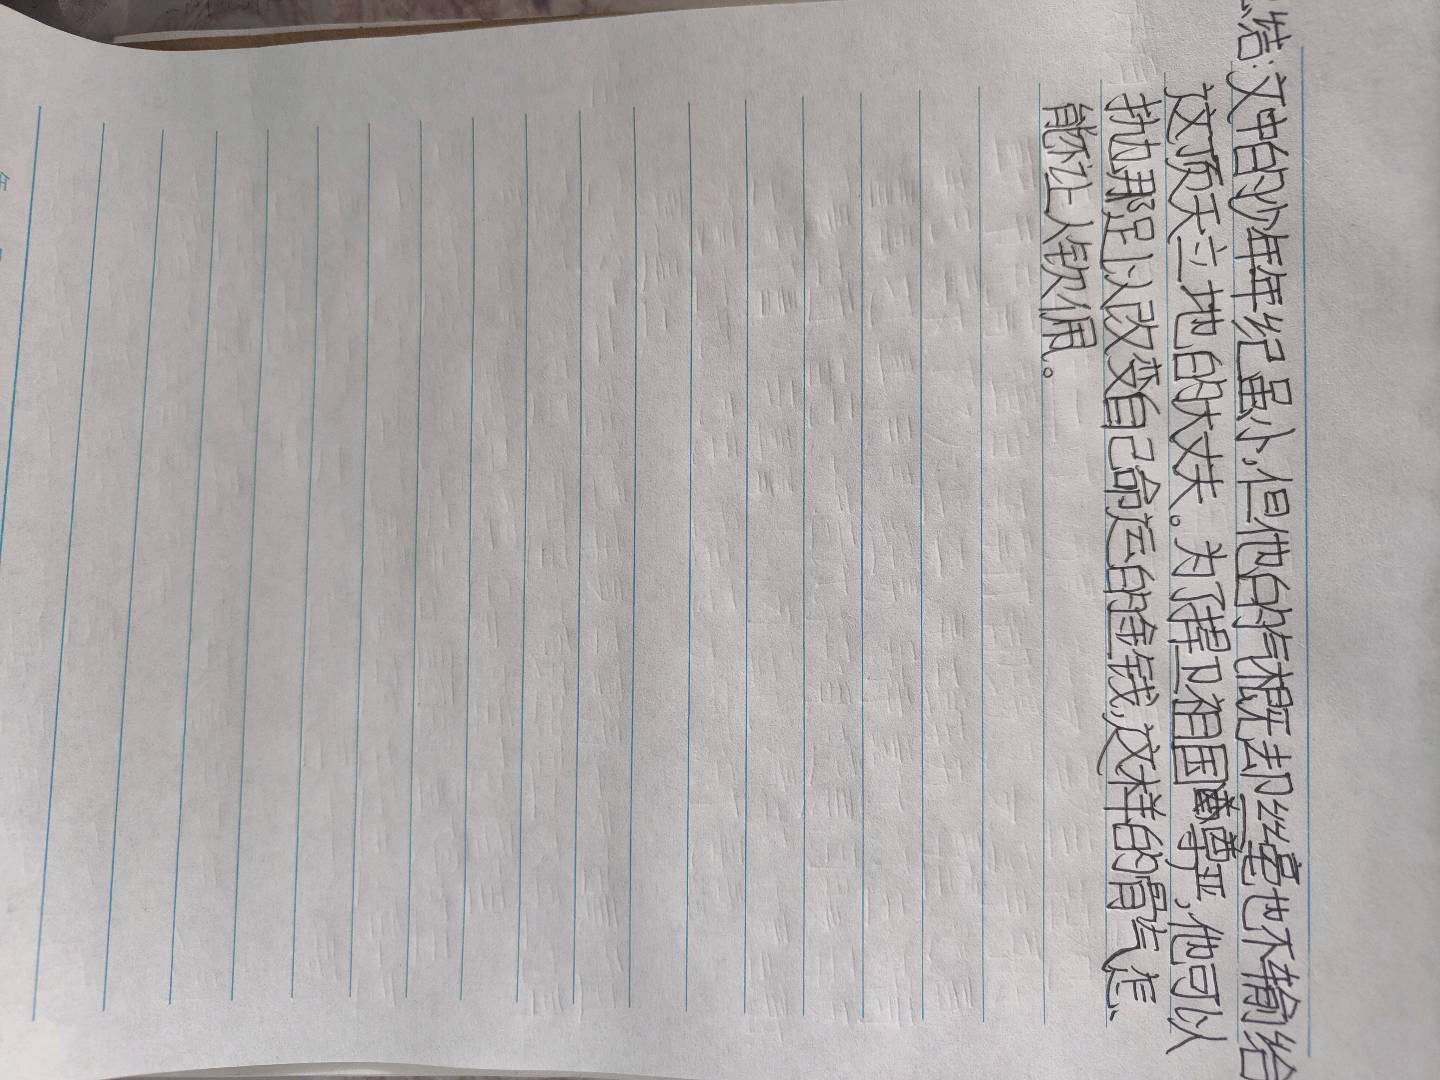 结:文中的少年年纪虽小,但他的气概却丝毫也不输给
这顶天立地的大丈夫。为了捍卫祖国尊严,他可以
抛那足以改变自己命运的金钱,这样的骨气怎
能不让人钦佩。
年